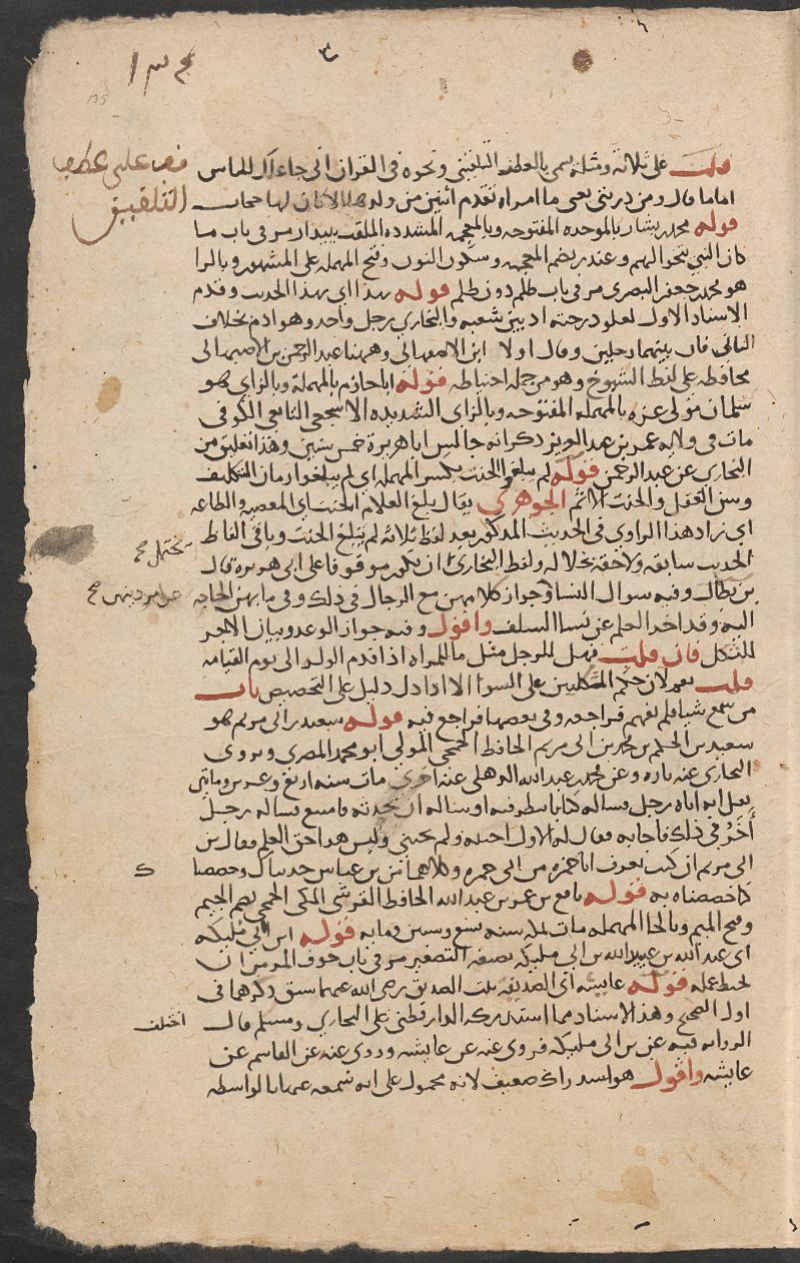 ١٣٤
قف على عطف
التلقين
قلت على ثلاثة ومثله يسمى بالعطف التلقيني ونحوه في القران اني جاعلك للناس
اماما قال ومن ذريتي يعني ما امراة تقدم اثنين من ولدها الا كان لها حجاب
قوله محمد بن بشار بالموحدة المفتوحة وبالمعجمة المشددة الملقب ببندار مر في باب ما
كان النبي يتخولهم وغندر بضم المعجمة وسكون النون وفتح المهملة على المشهور وبالرا
هو محمد بن جعفر البصري مر في باب ظلم دون ظلم قوله بهذا اي بهذا الحديث وقدم
الاسناد الاول لعلو درجته اذ بين شعبة والبخاري رجل واحد وهو ادم بخلاف
الثاني فان بينهما رجلين وقال اولا ابن الاصبهاني وههنا عبد الرحمن بن الاصبهاني
محافظة على لفظ الشيوخ وهو من جملة احتياطه قوله ابا حازم بالمهملة وبالزاي هو
سلمان مولى عزة بالمهملة المفتوحة وبالزاي الشديدة الاشجعي التابعي الكوفي
مات في ولاية عمر بن عبد العزيز ذكر انه جالس ابا هريرة خمس سنين وهذا تعليق من
البخاري عن عبد الرحمن قوله لم يبلغوا الحنث بكسر المهملة اي لم يبلغوا زمان التكليف
وسن العقل والحنث الاثم الجوهري يقال بلغ الغلام الحنث اي المعصية والطاعة
اي زاد هذا الراوي في الحديث المذكور بعد لفظ ثلاثة لم يبلغ الحنث وباقي الفاظ
الحديث سابقه ولاحقه بحاله ولفظ البخاري ان يكون موقوفا على ابي هريرة قال
يحتمل صح
بن بطال وفيه سوال النسا وجواز كلامهن مع الرجال في ذلك وفي ما بهن الحاجة
عن امر دينهن صح
اليه وقد اخذ العلم عن نسا السلف واقول وفيه جواز الوعد وبيان الاجر
للثكل فان قلت فهل للرجل مثل ما للمراة اذا قدم الولد الى يوم القيامة
قلت نعم لان حكم المكلفين على السوا الا اذا دل دليل على التخصيص باب
من سمع شيا فلم يفهم فراجعه وفي بعضها فراجع فيه قوله سعيد بن ابي مريم هو
سعيد بن الحكم بن محمد بن ابي مريم الحافظ الجمحي المولى ابو محمد المصري وروى
البخاري عنه تارة وعن محمد بن عبد الله الذهلي عنه اخرى مات سنة اربع وعشرين وماتين
نقل انه اتاه رجل فساله كتابا ينظر فيه او ساله ان يحدثه فامتنع فساله رجل
آخر في ذلك فاجابه فقال له الاول اجبته ولم تجبني وليس هذا حق العلم فقال بن
ابي مريم ان كنت تعرف ابا حمزة من ابي جمرة وكلاهما عن بن عباس حدثناك وخصصناك
كما خصصناه به قوله نافع بن عمر بن عبد الله الحافظ القرشي المكي الجمحي بضم الجيم
وفتح الميم وبالحا المهملة مات بمكة سنة تسع وستين وماية قوله ابن ابي مليكة
اي عبد الله بن عبيد الله بن ابي مليكة بصيغة التصغير مر في باب خوف المومن ان
يحبط عمله قوله عايشة اي الصديقة بنت الصديق رضي الله عنهما سبق ذكرهما في
اول الصحيح وهذا الاسناد مما استدركه الدارقطني على البخاري ومسلم قال
اختلف
الرواية فيه عن بن ابي مليكة فروى عنه عن عايشة وروى عنه عن القاسم عن
عايشة واقول هو استدراك ضعيف لانه محمول على انه سمعه عنها بالواسطة